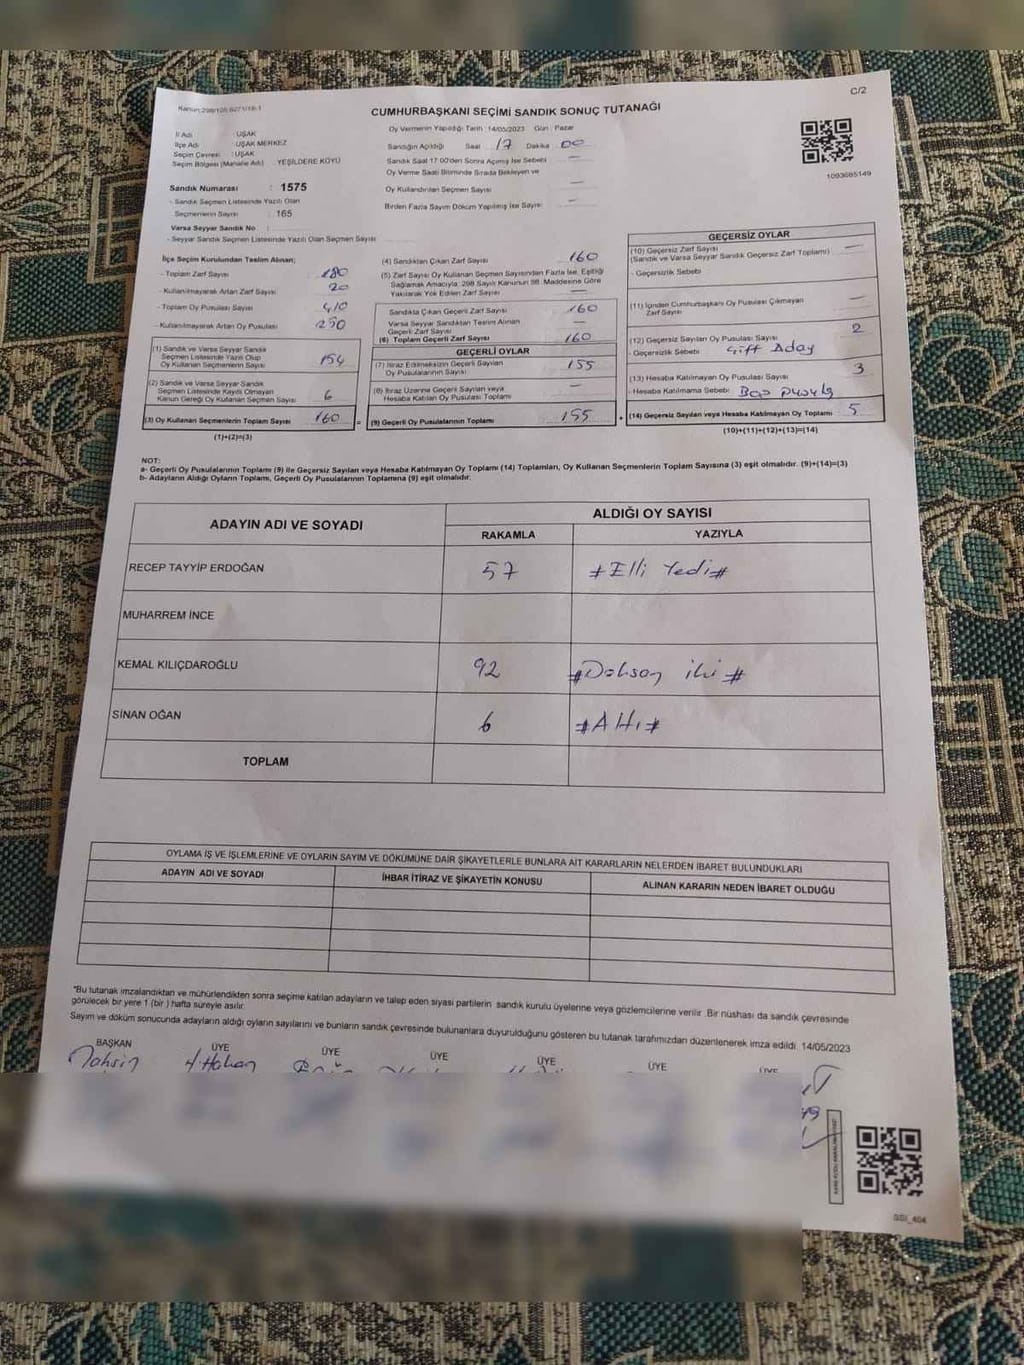 Kanun:298/105,6271/18-1
C/2
CUMHURBAŞKANI SEÇİMİ SANDIK SONUÇ TUTANAĞI
İl Adı : UŞAK
İlçe Adı : UŞAK MERKEZ
Seçim Çevresi : UŞAK
Seçim Bölgesi (Mahalle Adı) YEŞİLDERE KÖYÜ
Sandık Numarası : 1575
- Sandık Seçmen Listesinde Yazılı Olan
Seçmenlerin Sayısı : 165
Varsa Seyyar Sandık No :
- Seyyar Sandık Seçmen Listesinde Yazılı Olan Seçmen Sayısı
Oy Vermenin Yapıldığı Tarih : 14/05/2023 Gün : Pazar
Sandığın Açıldığı Saat 17 Dakika 00
Sandık Saat 17.00'den Sonra Açılmış İse Sebebi —
Oy Verme Saati Bitiminde Sırada Bekleyen ve
Oy Kullandırılan Seçmen Sayısı —
Birden Fazla Sayım Döküm Yapılmış İse Sayısı —
1093685149
İlçe Seçim Kurulundan Teslim Alınan;
- Toplam Zarf Sayısı 180
- Kullanılmayarak Artan Zarf Sayısı 20
- Toplam Oy Pusulası Sayısı 410
- Kullanılmayarak Artan Oy Pusulası 250
(1) Sandık ve Varsa Seyyar Sandık
Seçmen Listesinde Yazılı Olup
Oy Kullanan Seçmenlerin Sayısı 154
(2) Sandık ve Varsa Seyyar Sandık
Seçmen Listesinde Kayıtlı Olmayan
Kanun Gereği Oy Kullanan Seçmen Sayısı 6
(3) Oy Kullanan Seçmenlerin Toplam Sayısı 160 =
(1)+(2)=(3)
(4) Sandıktan Çıkan Zarf Sayısı 160
(5) Zarf Sayısı Oy Kullanan Seçmen Sayısından Fazla İse, Eşitliği
Sağlamak Amacıyla, 298 Sayılı Kanunun 98. Maddesine Göre
Yakılarak Yok Edilen Zarf Sayısı —
Sandıkta Çıkan Geçerli Zarf Sayısı 160
Varsa Seyyar Sandıktan Teslim Alınan
Geçerli Zarf Sayısı —
(6) Toplam Geçerli Zarf Sayısı 160
GEÇERLİ OYLAR
(7) İtiraz Edilmeksizin Geçerli Sayılan
Oy Pusulalarının Sayısı 155
(8) İtiraz Üzerine Geçerli Sayılan veya
Hesaba Katılan Oy Pusulası Toplamı —
(9) Geçerli Oy Pusulalarının Toplamı 155 +
GEÇERSİZ OYLAR
(10) Geçersiz Zarf Sayısı —
(Sandık ve Varsa Seyyar Sandık Geçersiz Zarf Toplamı)
- Geçersizlik Sebebi
(11) İçinden Cumhurbaşkanı Oy Pusulası Çıkmayan
Zarf Sayısı —
(12) Geçersiz Sayılan Oy Pusulası Sayısı 2
- Geçersizlik Sebebi Çift Aday
(13) Hesaba Katılmayan Oy Pusulası Sayısı 3
- Hesaba Katılmama Sebebi Boş pusula
(14) Geçersiz Sayılan veya Hesaba Katılmayan Oy Toplamı 5
(10)+(11)+(12)+(13)=(14)
NOT:
a- Geçerli Oy Pusulalarının Toplamı (9) ile Geçersiz Sayılan veya Hesaba Katılmayan Oy Toplamı (14) Toplamları, Oy Kullanan Seçmenlerin Toplam Sayısına (3) eşit olmalıdır. (9)+(14)=(3)
b- Adayların Aldığı Oyların Toplamı, Geçerli Oy Pusulalarının Toplamına (9) eşit olmalıdır.
ADAYIN ADI VE SOYADI
ALDIĞI OY SAYISI
RAKAMLA YAZIYLA
RECEP TAYYİP ERDOĞAN 57 #Elli Yedi#
MUHARREM İNCE
KEMAL KILIÇDAROĞLU 92 #Doksan iki#
SİNAN OĞAN 6 #Altı#
TOPLAM
OYLAMA İŞ VE İŞLEMLERİNE VE OYLARIN SAYIM VE DÖKÜMÜNE DAİR ŞİKAYETLERLE BUNLARA AİT KARARLARIN NELERDEN İBARET BULUNDUKLARI
ADAYIN ADI VE SOYADI İHBAR İTİRAZ VE ŞİKAYETİN KONUSU ALINAN KARARIN NEDEN İBARET OLDUĞU
*Bu tutanak imzalandıktan ve mühürlendikten sonra seçime katılan adayların ve talep eden siyasi partilerin sandık kurulu üyelerine veya gözlemcilerine verilir. Bir nüshası da sandık çevresinde
görülecek bir yere 1 (bir ) hafta süreyle asılır.
Sayım ve döküm sonucunda adayların aldığı oyların sayılarını ve bunların sandık çevresinde bulunanlara duyurulduğunu gösteren bu tutanak tarafımızdan düzenlenerek imza edildi. 14/05/2023
BAŞKAN ÜYE ÜYE ÜYE ÜYE ÜYE ÜYE
Tahsin Hakan
GSI_404